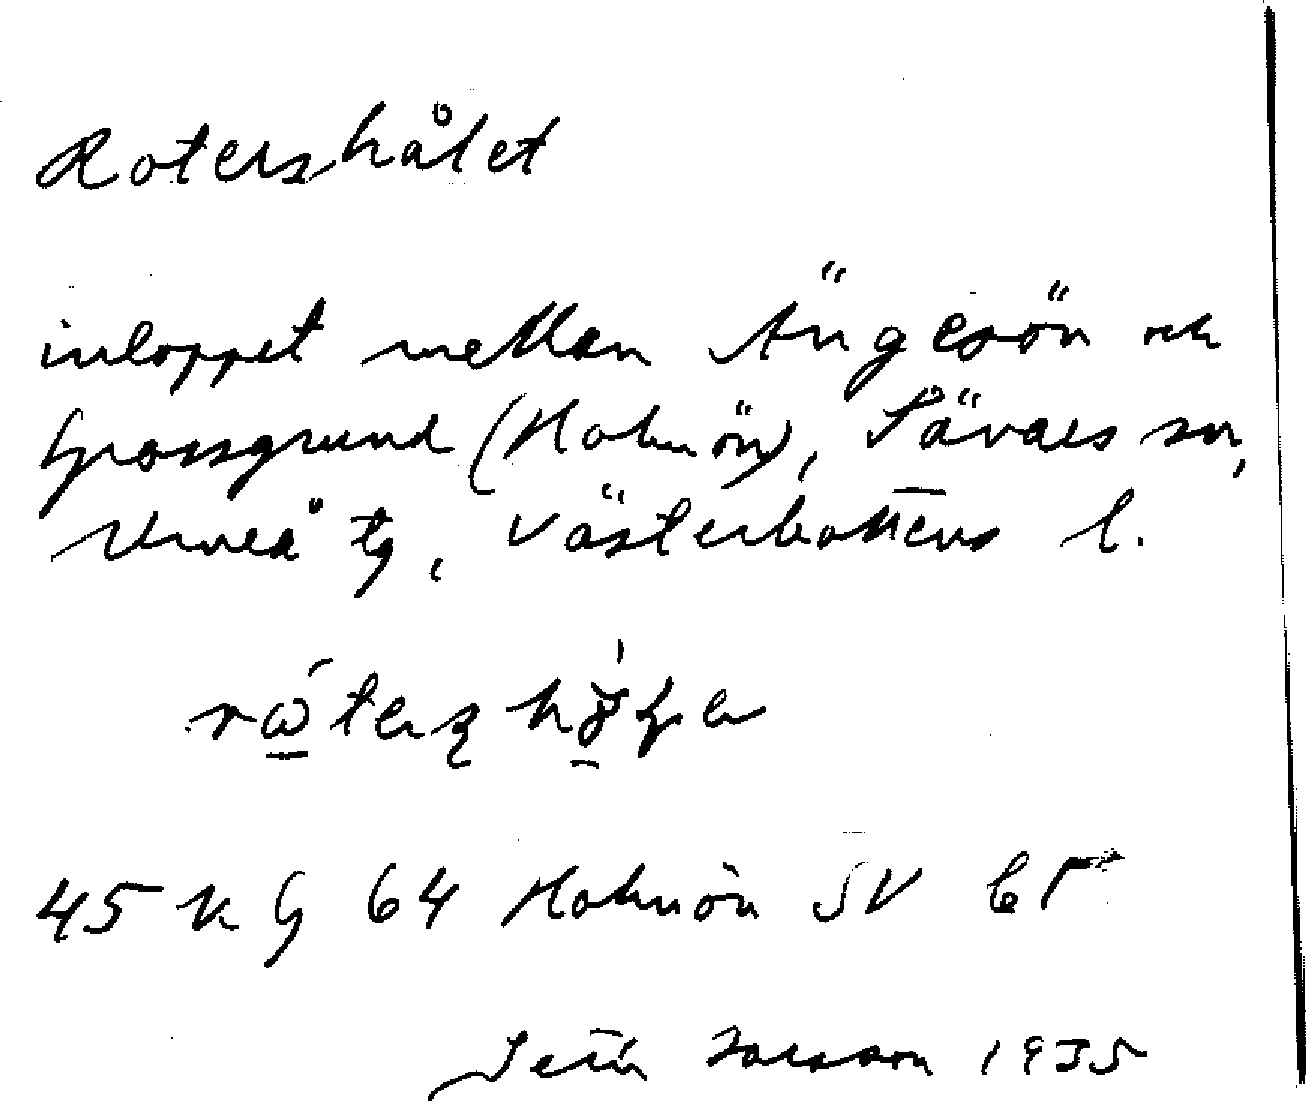 Rotershålet
inloppet mellan Ängesön och
Grossgrund (Holmön), Sävars sn,
Umeå tg, Västerbottens l.
45 K G 64 Holmön SV
Setén Isaksson 1935